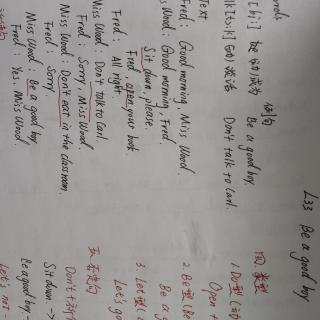 L33 Be a good boy
ords
[bi:] 是 (动) 成为 例句 Be a good boy.
lk [tɔ:k] (动) 谈话 Don't talk to Carl.
ext
Fred: Good morning, Miss Wood.
s Wood: Good morning, Fred.
Sit down, please.
Fred, open your book
Fred: All right
Miss Wood: Don't talk to Carl.
Fred: Sorry, Miss Wood
Miss Wood: Don't eat in the classroom.
Fred: Sorry
Miss Wood: Be a good boy.
Fred: Yes, Miss Wood
四 类型
1 Do型 (动
Open
2. Be型 (Be
Be a
3. Let型 (
Let's go
五 否定句
Don't +
Sit down ->
Be a good boy ->
Let's not